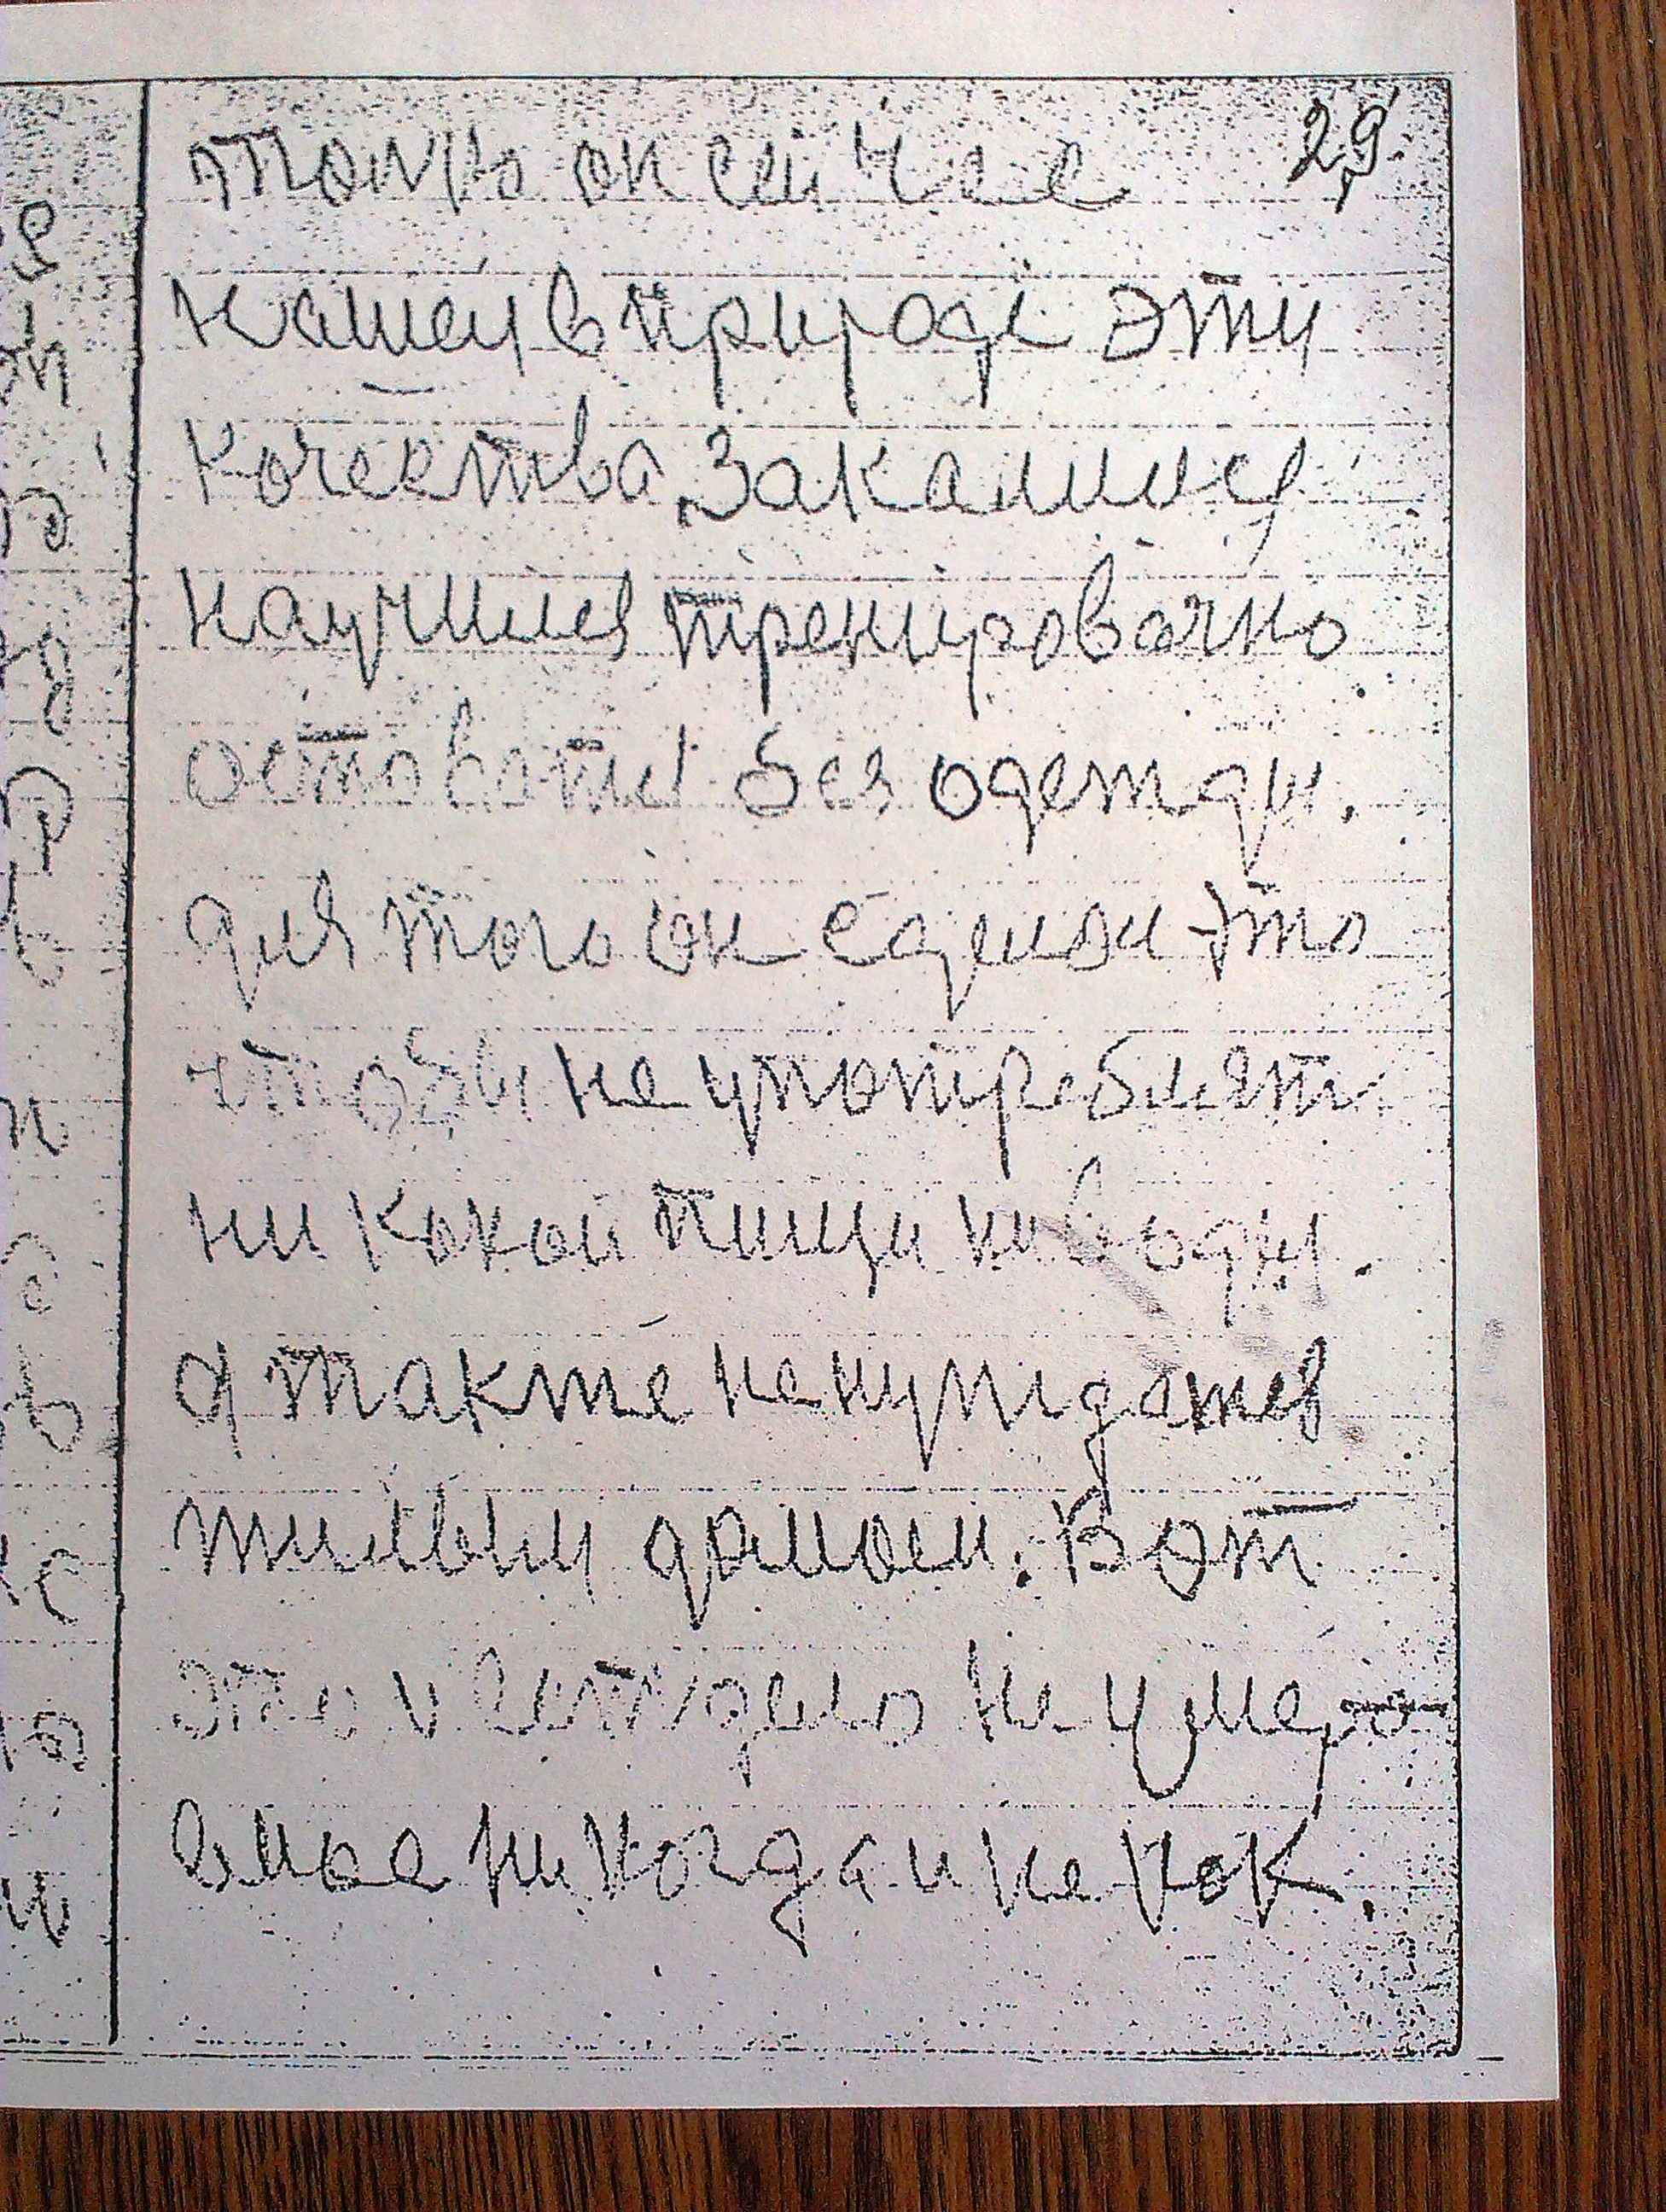 29
только он сей час
нашел в природе эту
качества закалился
научился тренировачно
оставатся без одежды,
для того он сделал это
чтобы не употреблять
ни какой пищи ни воды.
а также не нуждатся
жилым домом. Вот
это и есть дело не умера
емое никогда и не как.